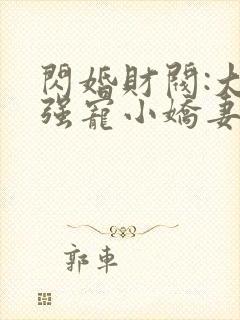 閃婚財閥:大
强寵小嬌妻
郭車